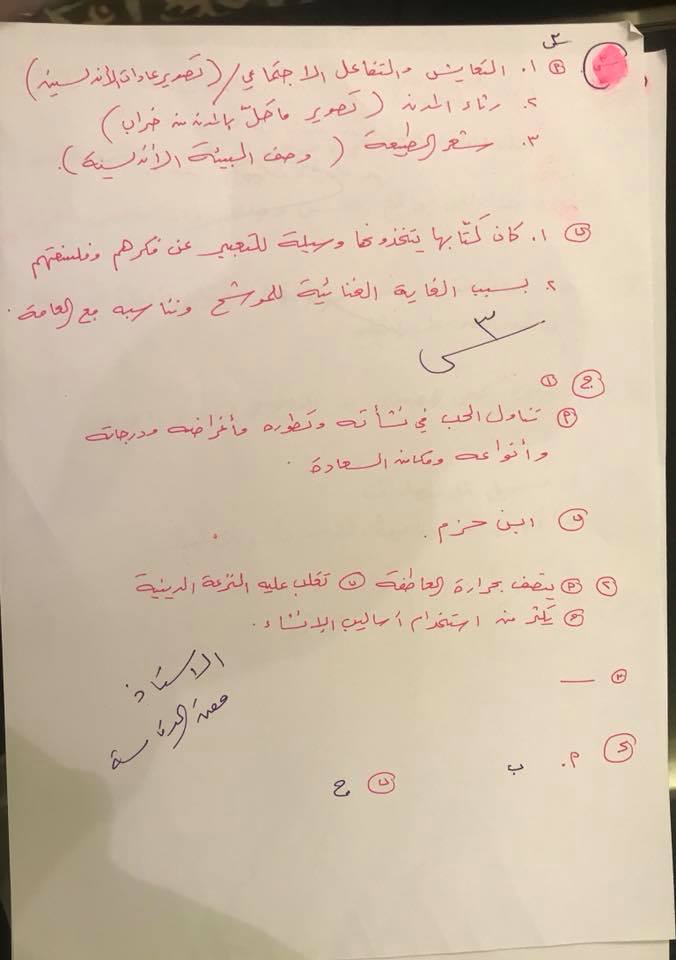 س
٣
أ ١. التعايش والتفاعل الاجتماعي / (تصوير عادات الأندلسية)
٢. رثاء المدن (تصوير ما حلّ بالمدن من خراب)
٣. شعر الطبيعة (وصف البيئة الأندلسية).
ب ١. كان كتّابها يتخذونها وسيلة للتعبير عن فكرهم وفلسفتهم
٢. بسبب الغاية الغنائية للموشح وتناسبه مع العامة.
٣
س
ج ١
أ تناول الحب في نشأته وتطوره وأغراضه ودرجاته
وأنواعه ومكان السعادة.
ب ابن حزم.
٢ أ يتصف بحرارة العاطفة ب تغلب عليه النزعة الدينية
ج يكثر من استخدام أساليب الإنشاء.
٣ —
الاستاذ
د أ. ب
ب ج